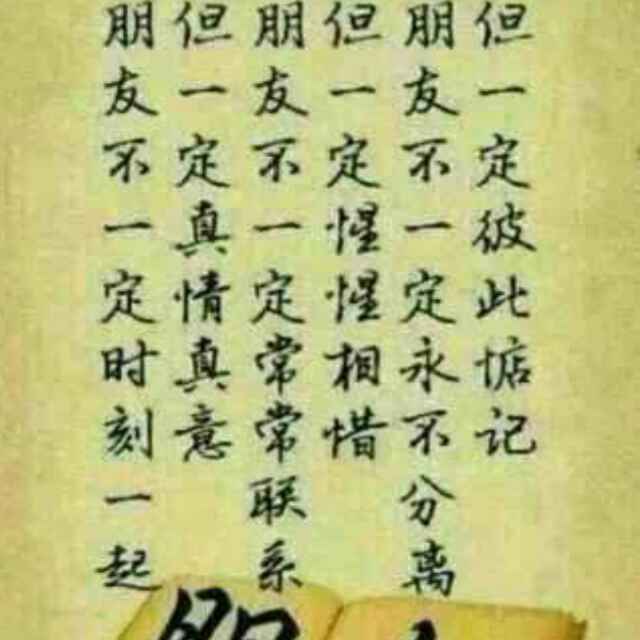 朋友不一定时刻一起
但一定真情真意
朋友不一定常常联系
但一定惺惺相惜
朋友不一定永不分离
但一定彼此惦记